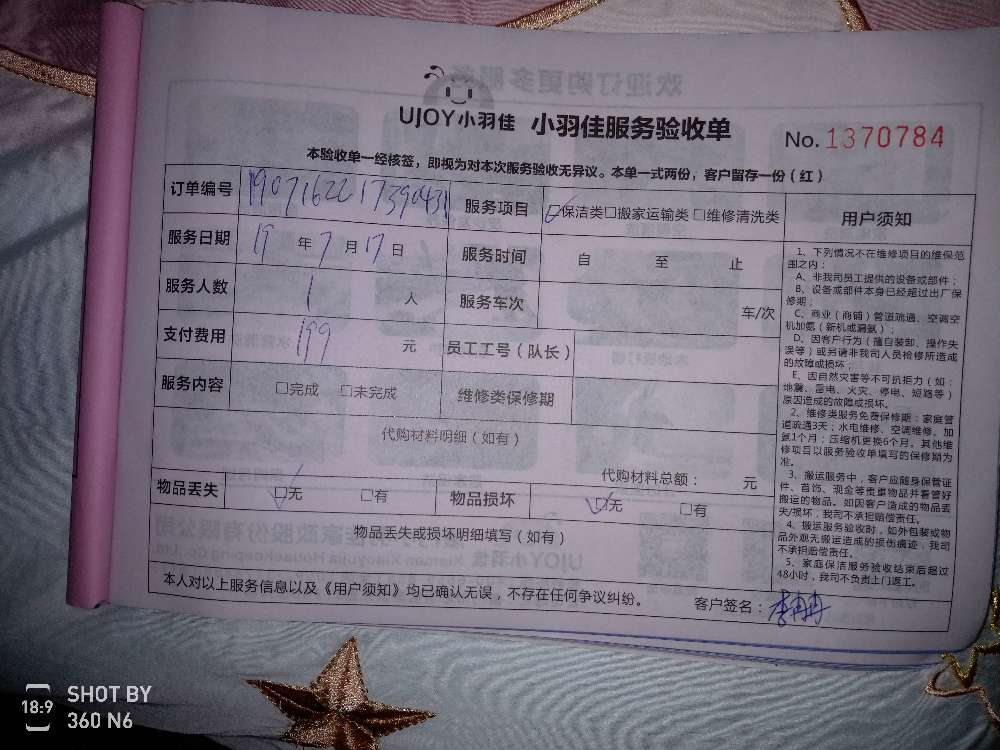 UJOY小羽佳 小羽佳服务验收单 No. 1370784
本验收单一经核签，即视为对本次服务验收无异议。本单一式两份，客户留存一份（红）
订单编号 1907162217390431 服务项目 ☑保洁类□搬家运输类□维修清洗类
服务日期 19 年 7 月 17 日 服务时间 自 至 止
服务人数 1 人 服务车次 车/次
支付费用 199 元 员工工号（队长）
服务内容 □完成 □未完成 维修类保修期
代购材料明细（如有）
代购材料总额： 元
物品丢失 ☑无 □有 物品损坏 ☑无 □有
物品丢失或损坏明细填写（如有）
本人对以上服务信息以及《用户须知》均已确认无误，不存在任何争议纠纷。 客户签名：李冉冉
用户须知
1、下列情况不在维修项目的维保范
围之内：
A、非我司员工提供的设备或部件；
B、设备或部件本身已经超过出厂保
修期；
C、商业（商铺）管道疏通、空调空
机加氨（新机或漏氨）；
D、因客户行为（擅自装卸、操作失
误等）或另请非我司人员检修所造成
的故障或损坏；
E、因自然灾害等不可抗拒力（如：
地震、雷电、火灾、停电、短路等）
原因造成的故障或损坏。
2、维修类服务免费保修期：家庭管
道疏通3天；水电维修、空调维修、加
氨1个月；压缩机更换6个月。其他维
修项目以服务验收单填写的保修期为
准。
3、搬运服务中，客户应随身保管证
件、首饰、现金等贵重物品并看管好
搬运的物品。如因客户造成的物品丢
失/损坏，我司不承担赔偿责任。
4、搬运服务验收时，如外包装或物
品外观无搬运造成的损伤痕迹，我司
不承担赔偿责任。
5、家庭保洁服务验收结束后超过
48小时，我司不负责上门返工。
18:9 SHOT BY
360 N6